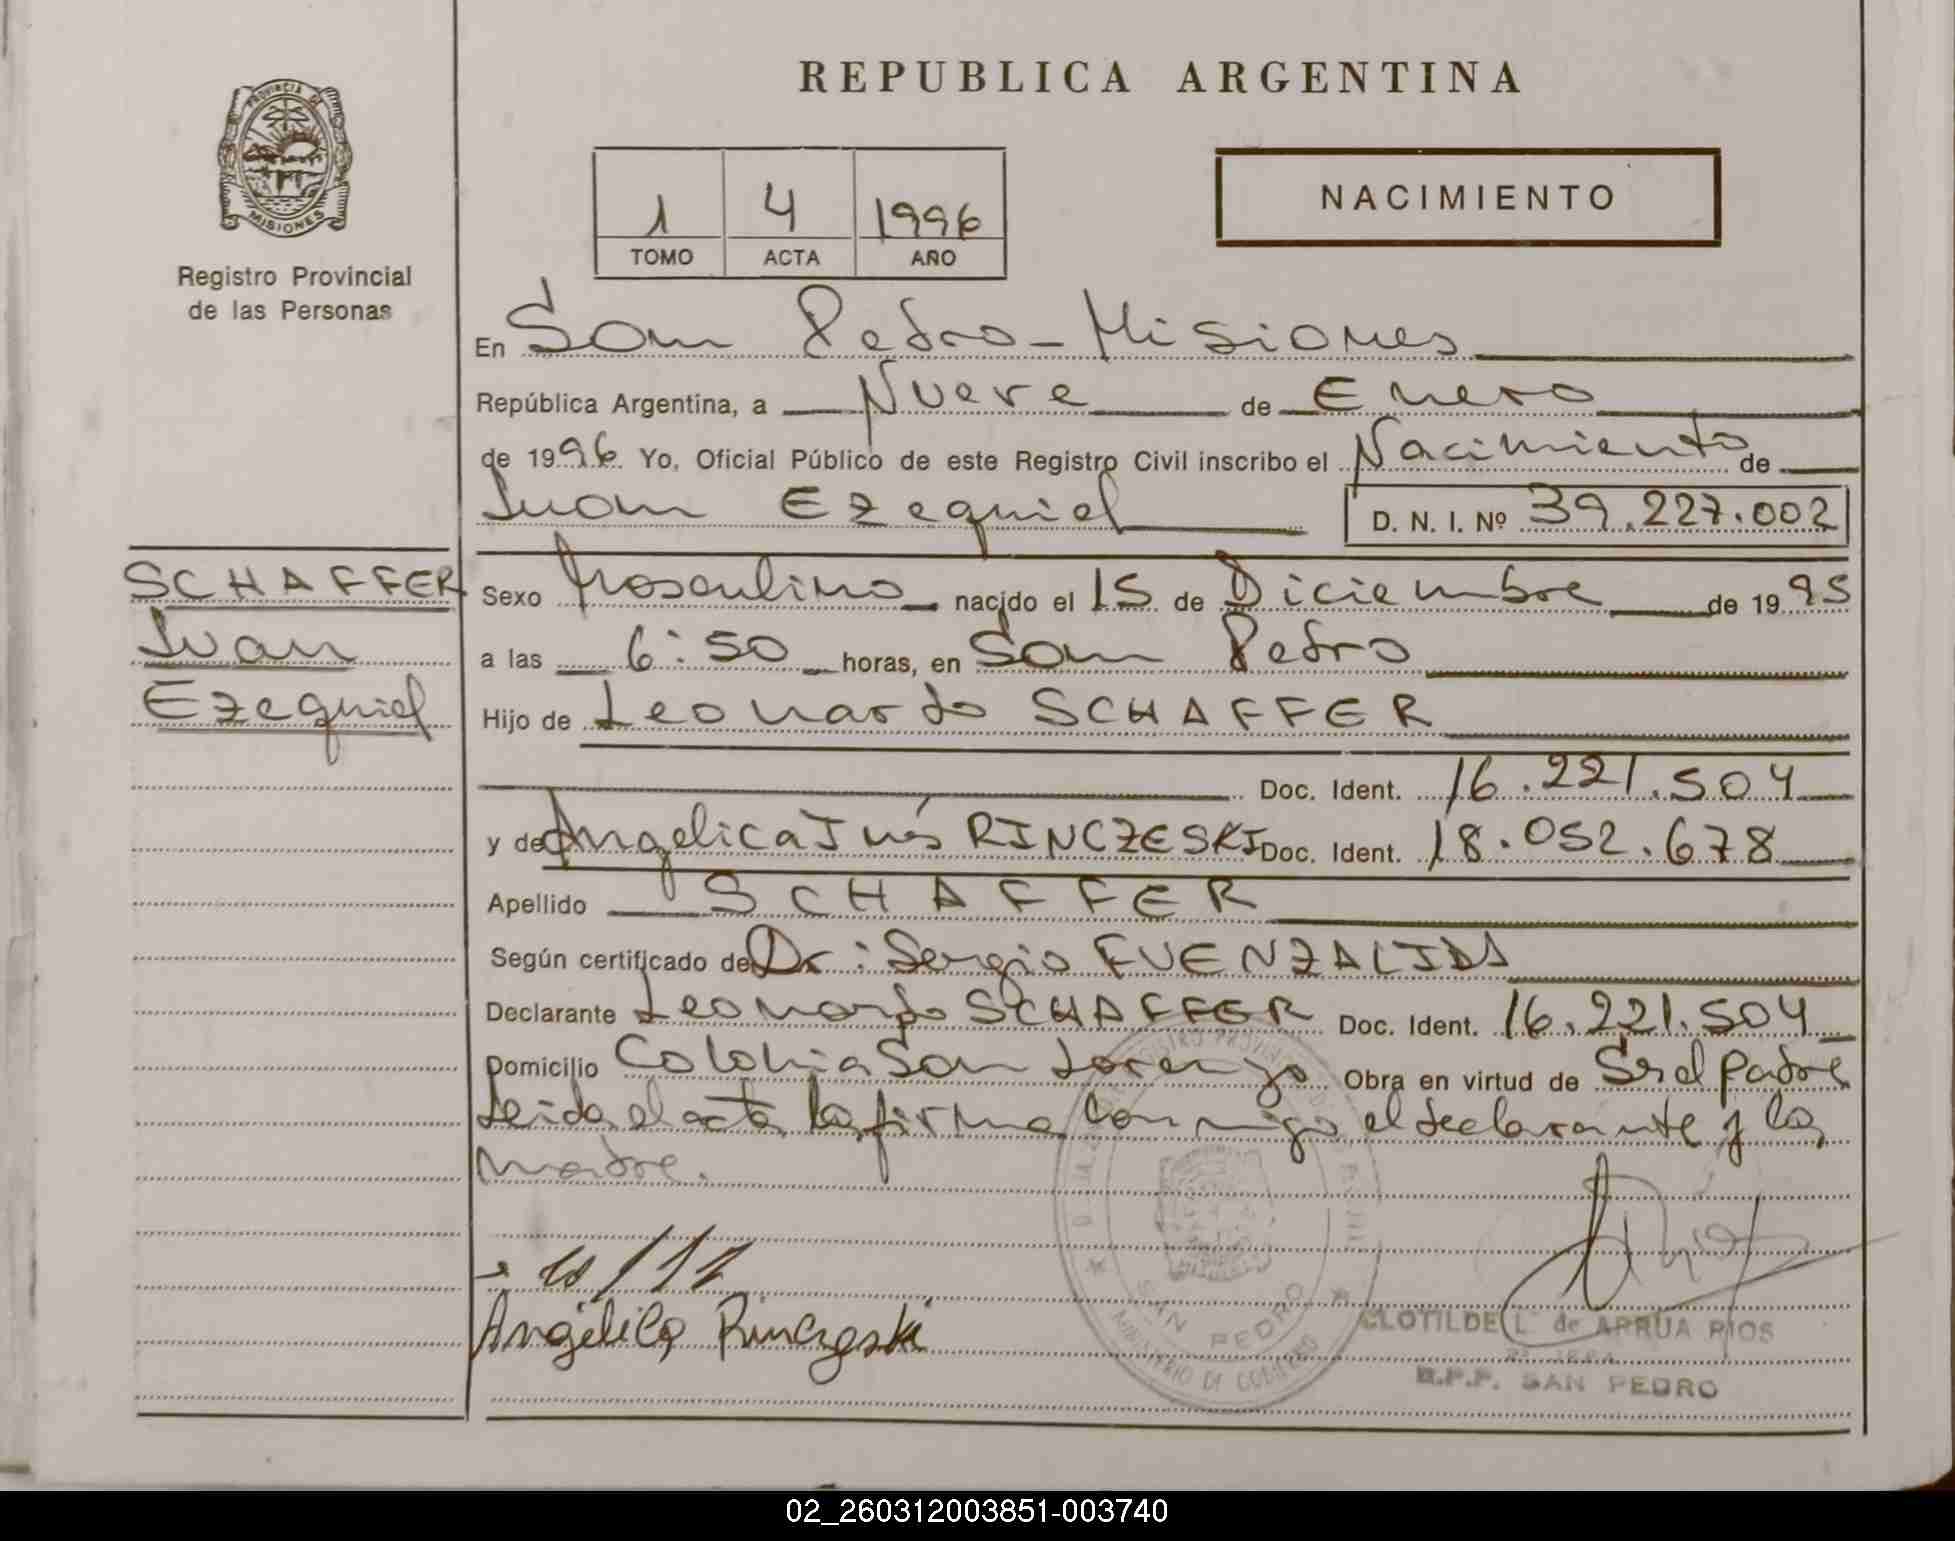 REPUBLICA ARGENTINA
PROVINCIA DE
MISIONES
Registro Provincial
de las Personas
1 4 1996
TOMO ACTA AÑO
NACIMIENTO
En San Pedro - Misiones
República Argentina, a Nueve de Enero
de 1996 Yo, Oficial Público de este Registro Civil inscribo el Nacimiento de
Juan Ezequiel D. N. I. Nº 39.227.002
SCHAFFER
Juan
Ezequiel
Sexo Masculino nacido el 15 de Diciembre de 1995
a las 6:50 horas, en San Pedro
Hijo de Leonardo SCHAFFER
Doc. Ident. 16.221.504
y de Angélica Inés RINCZESKI Doc. Ident. 18.052.678
Apellido SCHAFFER
Según certificado de Dr: Sergio FUENZALIDA
Declarante Leonardo SCHAFFER Doc. Ident. 16.221.504
Domicilio Colonia San Lorenzo Obra en virtud de Ser el padre
Leida el acta la firma conmigo el declarante y la
madre.
Angélica Rinczeski
SAN PEDRO
MINISTERIO DE GOBIERNO
CLOTILDE L. de ARRUA RIOS
R.P.P. SAN PEDRO
02_260312003851-003740